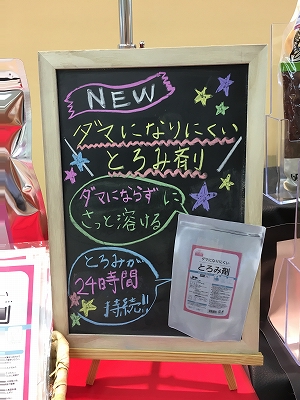 NEW
ダマになりにくい
とろみ剤
ダマにならずに
さっと溶ける
とろみが
24時間
持続!!
ダマになりにくい
とろみ剤